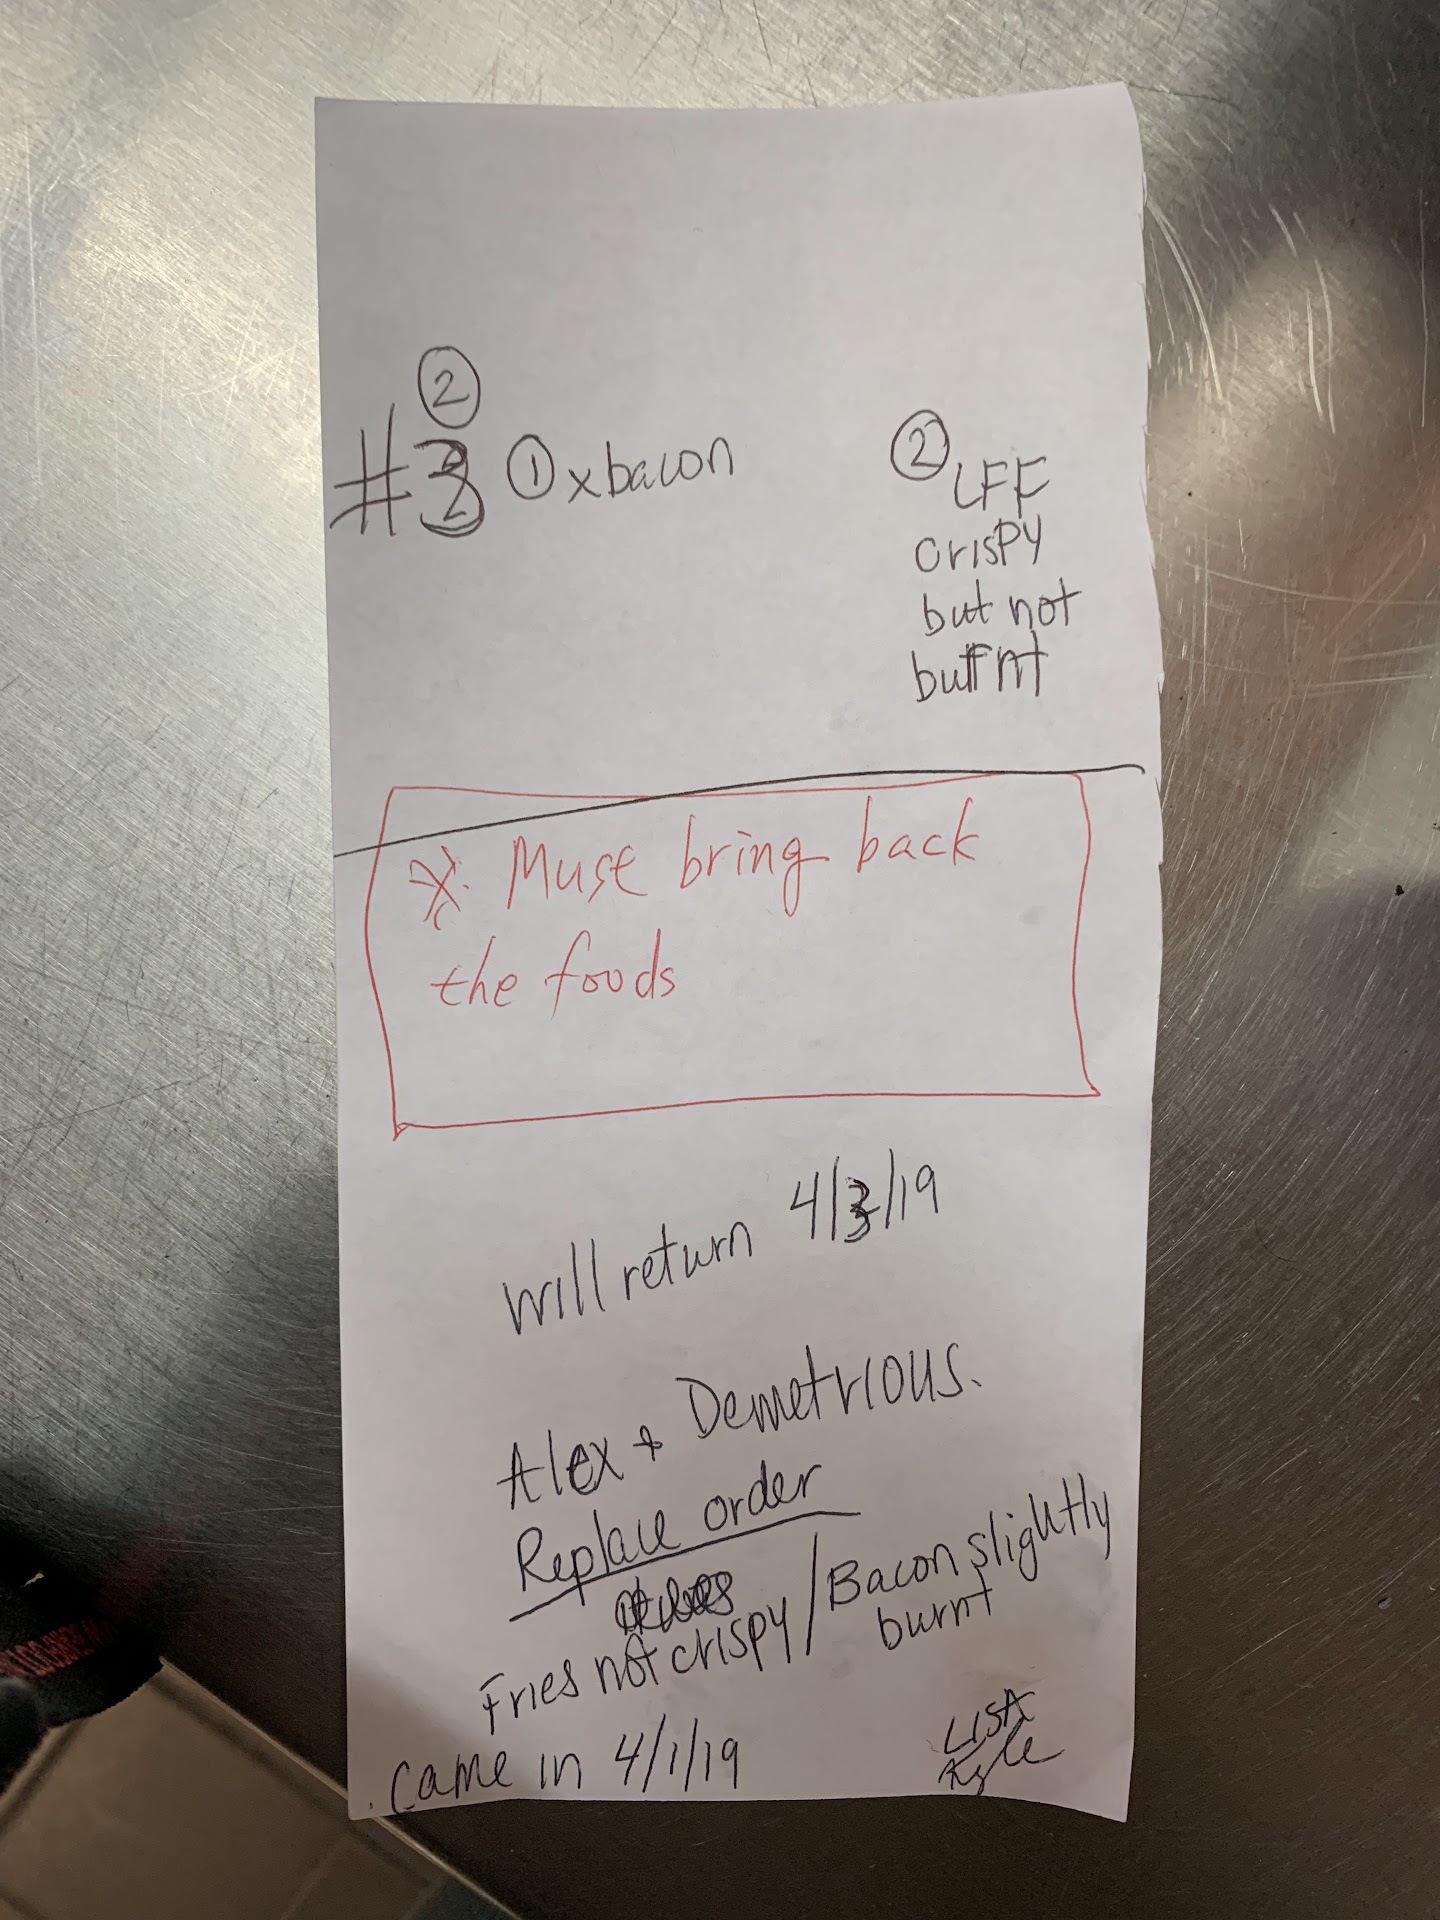 ②
# ① xbacon
② LFF
crispy
but not
burnt
※ Must bring back
the foods
will return 4/3/19
Alex + Demetrious.
Replace order
Fries not crispy / Bacon slightly
burnt
came in 4/1/19
LISA
Kyle